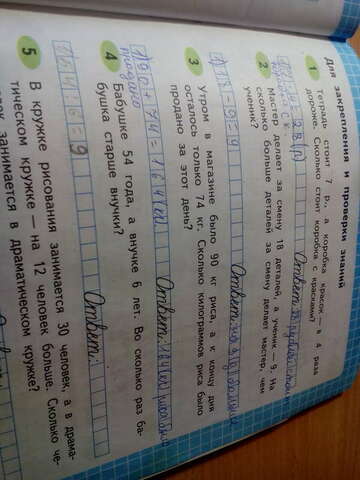 Для закрепления и проверки знаний
1 Тетрадь стоит 7 р., а коробка красок — в 4 раза
дороже. Сколько стоит коробка с красками?
28 (р)
Ответ:
2 Мастер делает за смену 18 деталей, а ученик — 9. На
сколько больше деталей за смену делает мастер, чем
ученик?
1) 18 - 9 = 9
Ответ: на 9 больше
3 Утром в магазине было 90 кг риса, а к концу дня
осталось только 74 кг. Сколько килограммов риса было
продано за этот день?
1) 90 + 74 = 164 (кг)
продано
Ответ: 164 кг риса было
4 Бабушке 54 года, а внучке 6 лет. Во сколько раз ба-
бушка старше внучки?
1) 54 : 6 = 9
Ответ:
5 В кружке рисования занимается 30 человек, а в драма-
тическом кружке — на 12 человек больше. Сколько че-
занимается в драматическом кружке?